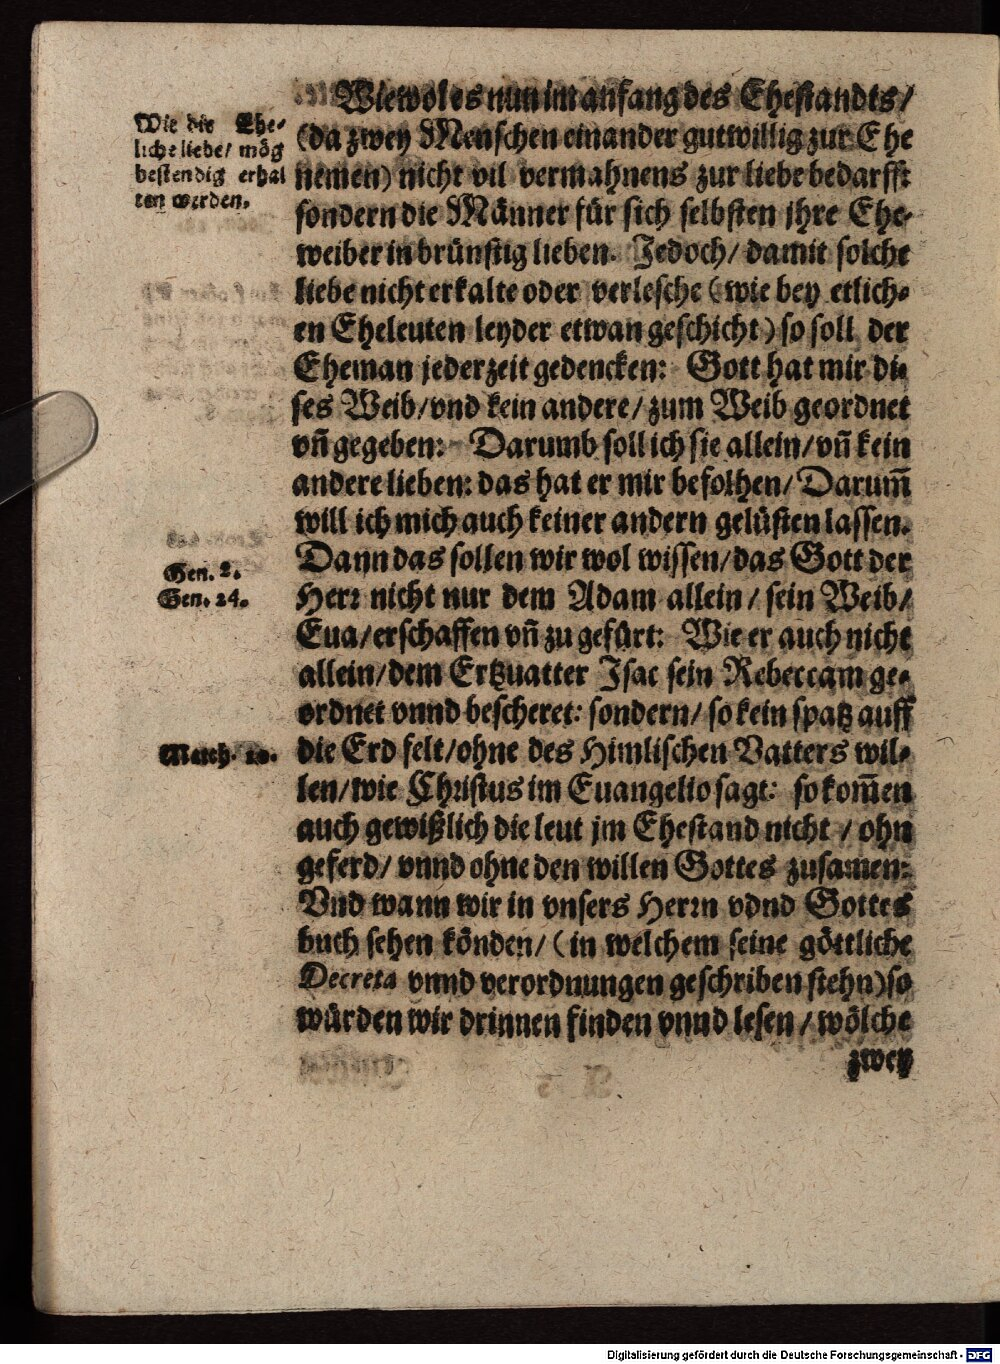 Wiewol es nun im anfang des Ehestandts/
Wie die Ehe-
liche liebe/ mög
bestendig erhal
ten werden.
(da zwey Menschen einander gutwillig zur Ehe
nemen) nicht vil vermahnens zur liebe bedarff:
sondern die Männer für sich selbsten ihre Ehe-
weiber inbrünstig lieben. Jedoch/ damit solche
liebe nicht erkalte oder verlesche (wie bey etlich-
en Eheleuten leyder etwan geschicht) so soll der
Eheman jederzeit gedencken: Gott hat mir die
ses Weib/ vnd kein andere/ zum Weib geordnet
vñ gegeben: Darumb soll ich sie allein/ vñ kein
andere lieben: das hat er mir befolhen/ Darum̃
will ich mich auch keiner andern gelüsten lassen.
Dann das sollen wir wol wissen/ das Gott der
Gen. 2.
Gen. 24.
Herr nicht nur dem Adam allein/ sein Weib/
Eua/ erschaffen vñ zu gefürt: Wie er auch nicht
allein/ dem Ertzuatter Isac sein Rebeccam ge-
ordnet vnnd bescheret: sondern/ so kein spatz auff
Matth. 10.
die Erd felt/ ohne des Himlischen Vatters wil-
len/ wie Christus im Euangelio sagt: so kom̃en
auch gewißlich die leut jm Ehestand nicht / ohn
geferd/ vnnd ohne den willen Gottes zusamen:
Vnd wann wir in vnsers Herrn vdnd Gottes
buch sehen könden/ (in welchem seine göttliche
Decreta vnnd verordnungen geschriben stehn) so
würden wir drinnen finden vnnd lesen/ wölche
zwey
Digitalisierung gefördert durch die Deutsche Forschungsgemeinschaft - DFG